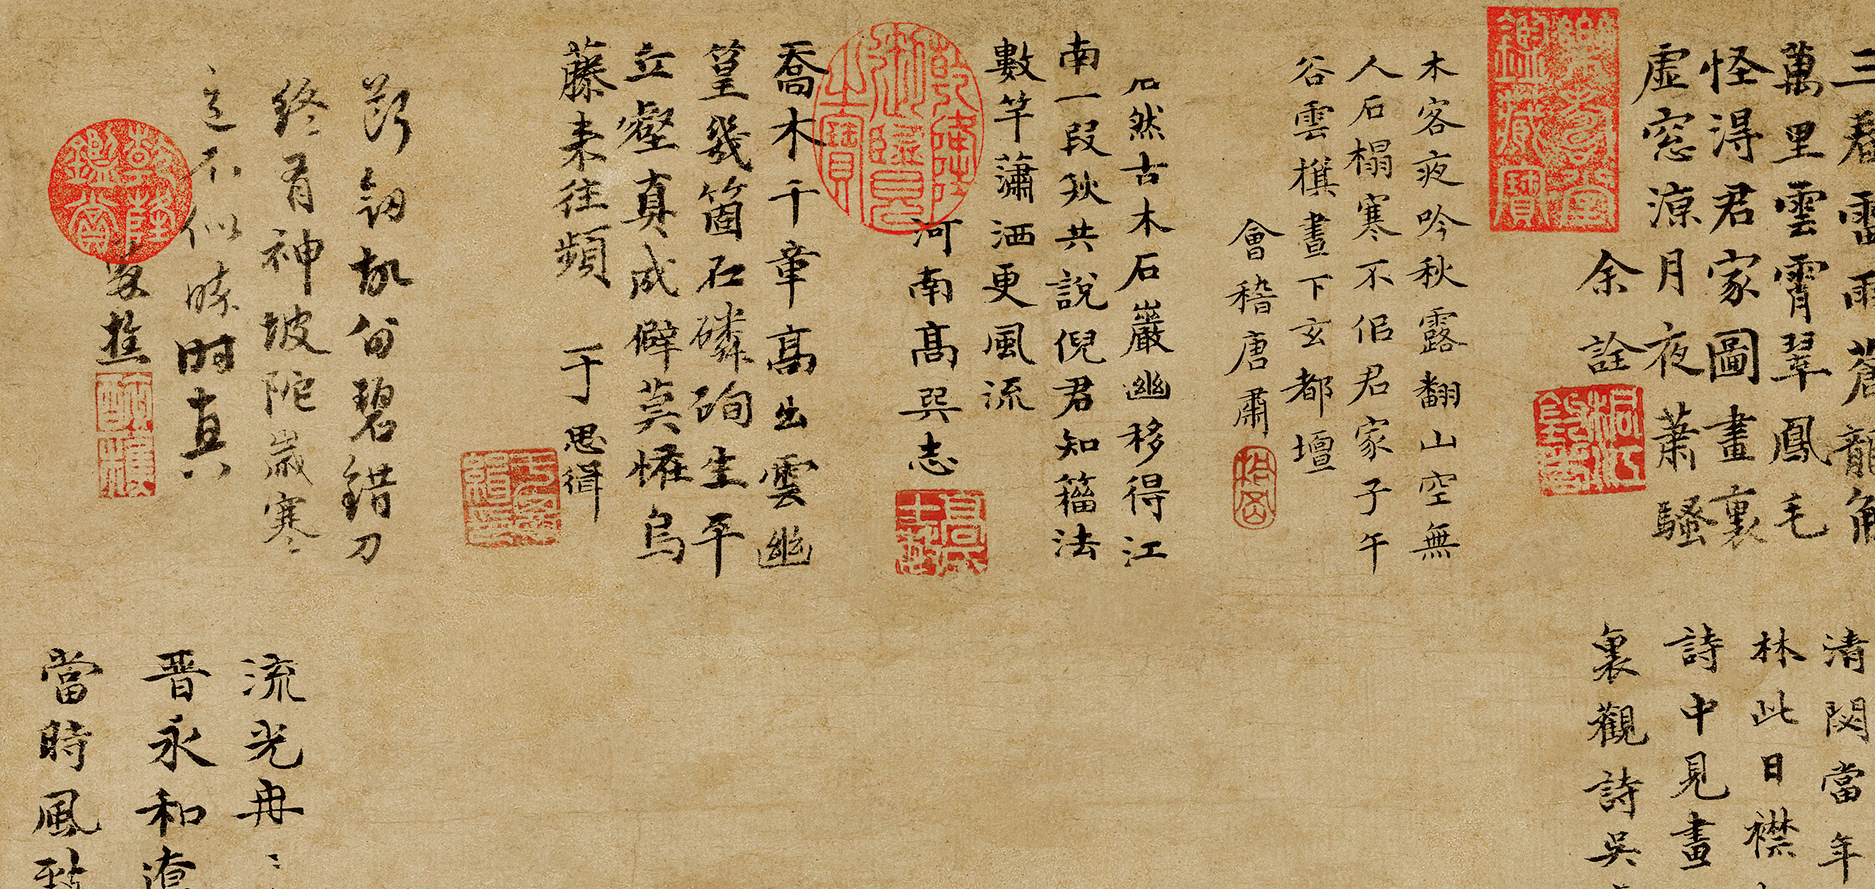 三春雷雨蒼龍角
萬里雲霄翠鳳毛
怪得君家圖畫裏
虛窓涼月夜蕭騷
余詮
桐江
樂壽堂鑑藏寶
木客夜吟秋露翻山空無
人石榻寒不侶君家子午
谷雲棋晝下玄都壇
會稽唐肅
石然古木石巖幽移得江
南一段秋共說倪君知籀法
數竿蕭洒更風流
河南高巽志
乾隆御覽之寶
喬木千章高出雲幽
篁幾箇石磷峋生平
立壑真成僻莫怪烏
藤來往頻
于思緝
碧錯刀
終有神坡陀歲寒
不似時真
樵
乾隆鑑賞
清閟當年
林此日襟
詩中見畫
裏觀詩吳
流光冉
晋永和
當時風致